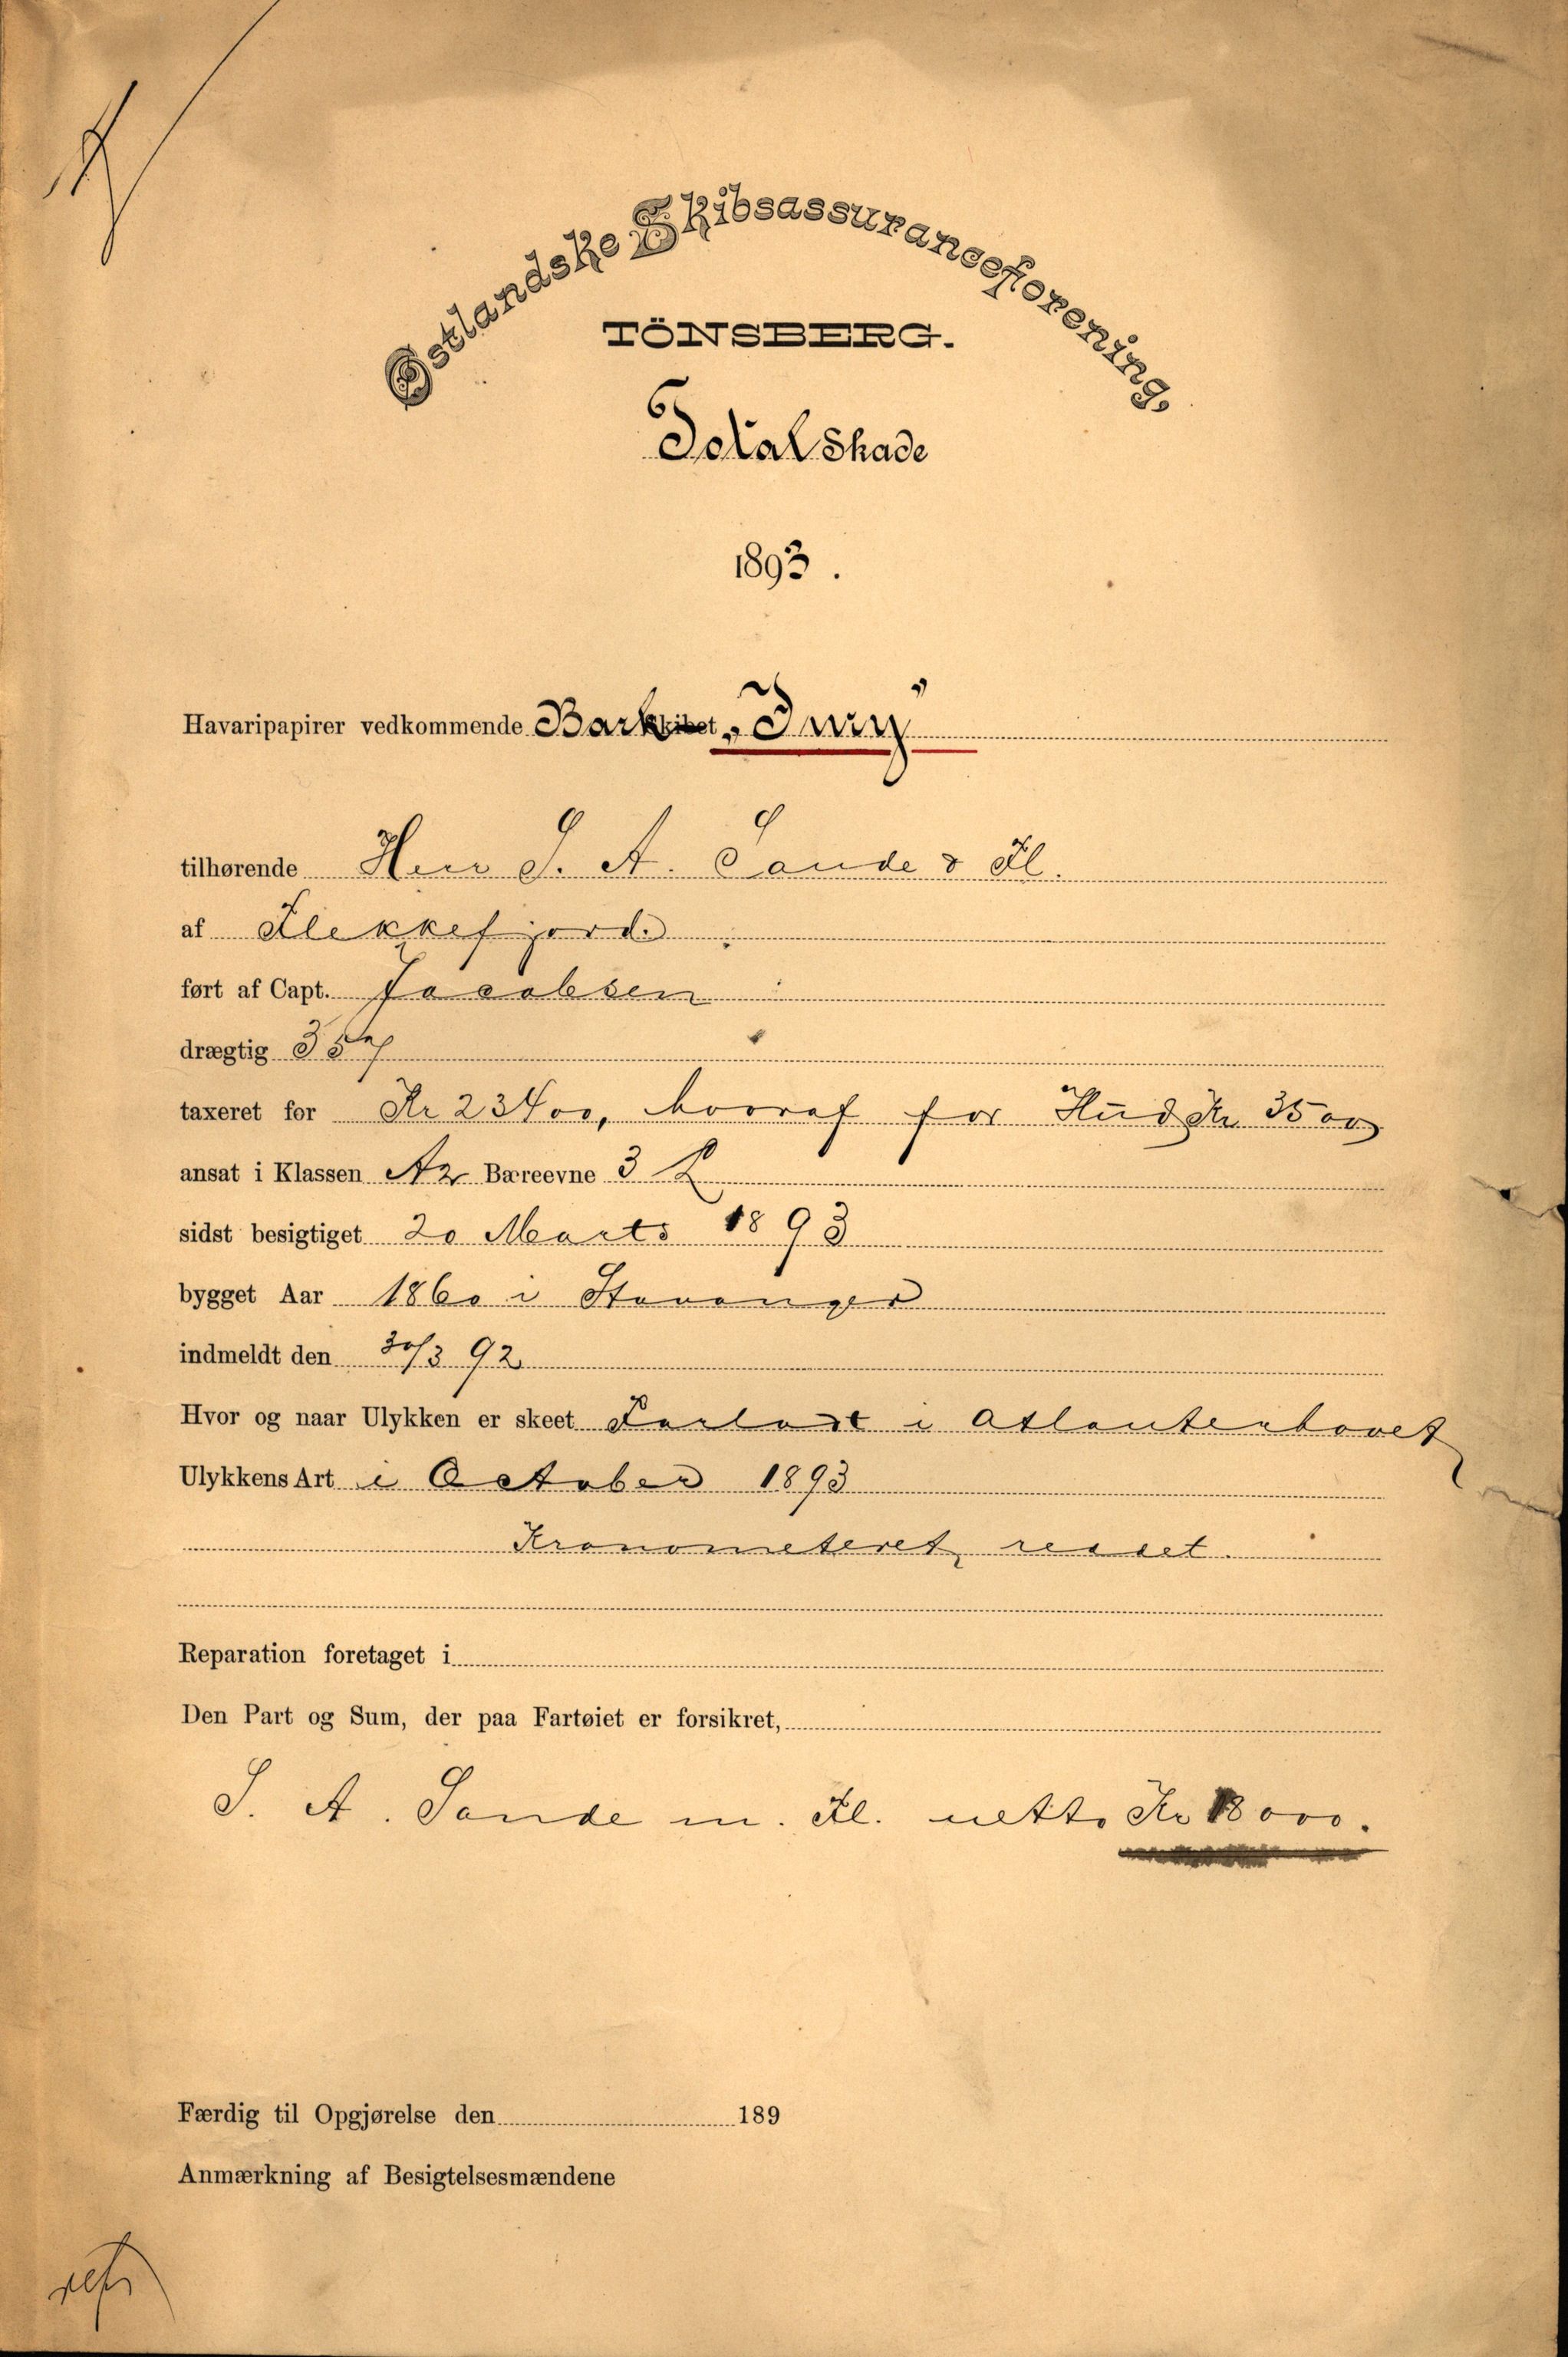 Østlandske Skibsassuranceforening,
TÖNSBERG.
Total Skade
1893.
Havaripapirer vedkommende Barkskibet „Juny"
tilhørende Herr S. A. Sande & Fl.
af Flekkefjord
ført af Capt. Jacobsen
drægtig 357
taxeret for Kr 23400, hvoraf for Hud Kr 3500
ansat i Klassen A2 Bæreevne 3 L
sidst besigtiget 20 Marts 1893
bygget Aar 1860 i Stavanger
indmeldt den 30/3 92
Hvor og naar Ulykken er skeet Forladt i Atlanterhavet
Ulykkens Art i October 1893
Kronometeret reddet.
Reparation foretaget i
Den Part og Sum, der paa Fartøiet er forsikret,
S. A. Sande m. Fl. netto Kr 18000.
Færdig til Opgjørelse den 189
Anmærkning af Besigtelsesmændene